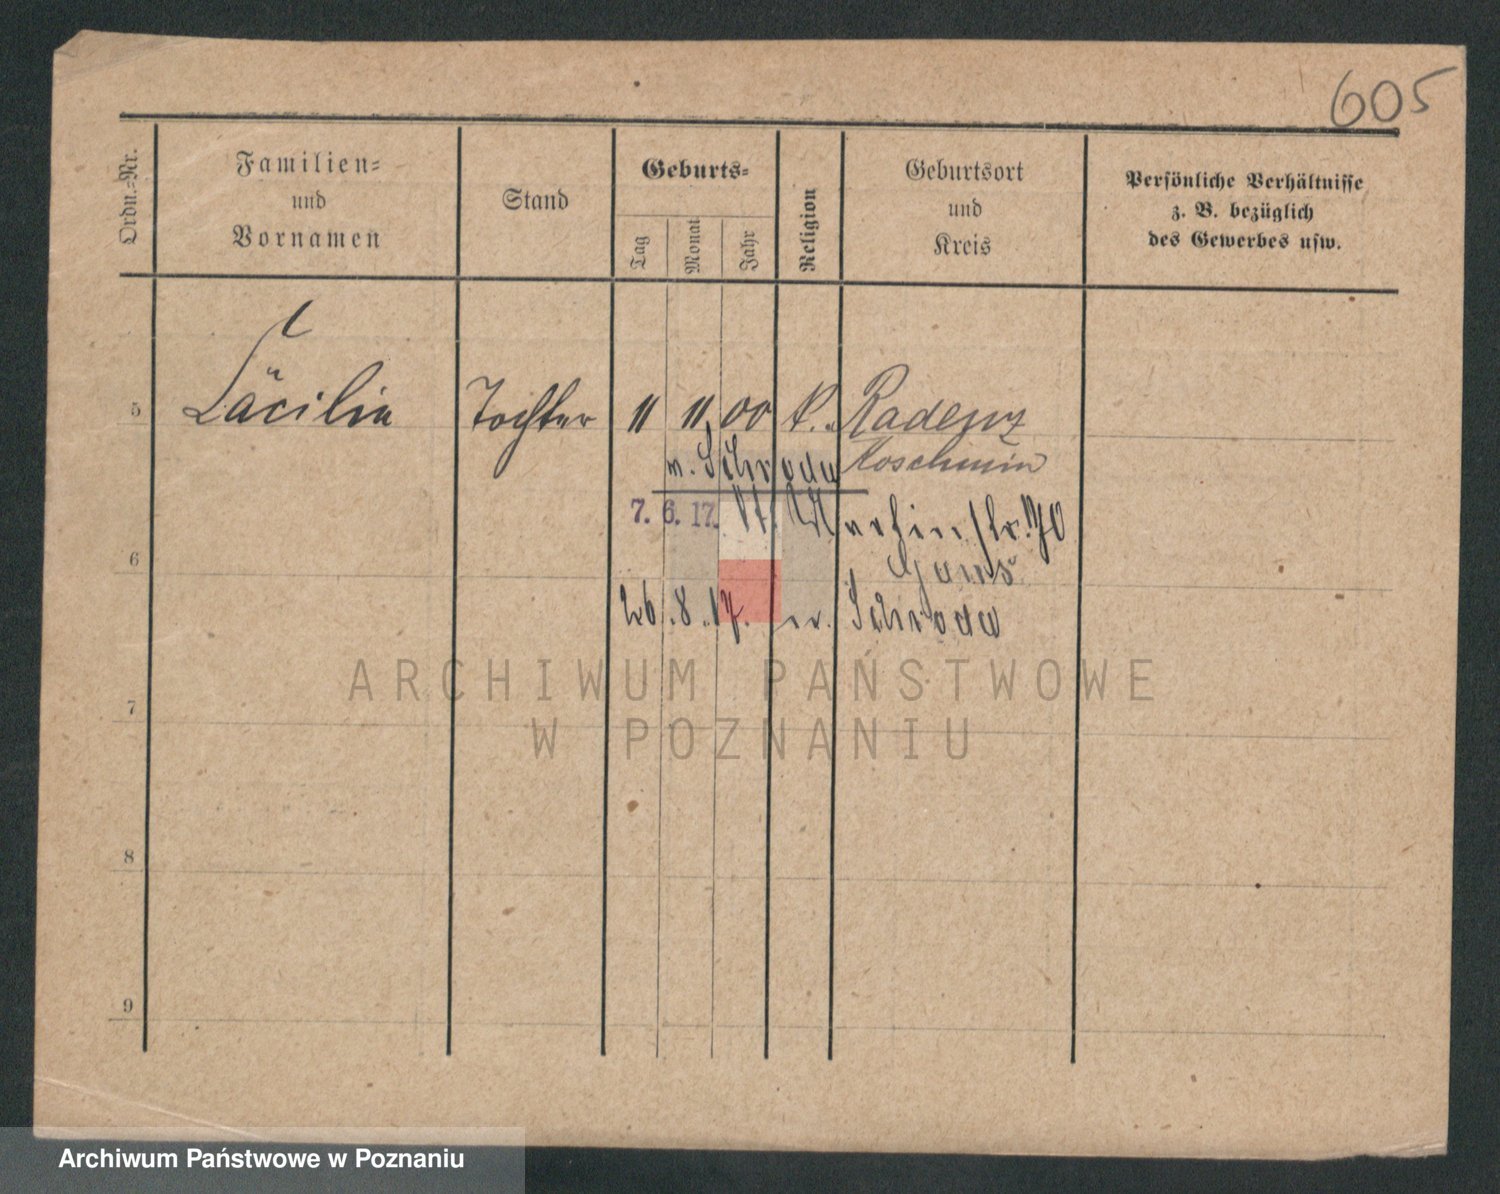 605
Ordn.=Nr.
Familien=
und
Vornamen
Stand
Geburts=
Tag
Monat
Jahr
Religion
Geburtsort
und
Kreis
Persönliche Verhältnisse
z. B. bezüglich
des Gewerbes usw.
5 Cäcilia Tochter 11 11. 00 k. Radenz
n. Schroda Koschmin
7. 6. 17. St. Martinstr. 70
6
26. 8. 17. Schroda
7
8
9
ARCHIWUM PAŃSTWOWE
W POZNANIU
Archiwum Państwowe w Poznaniu